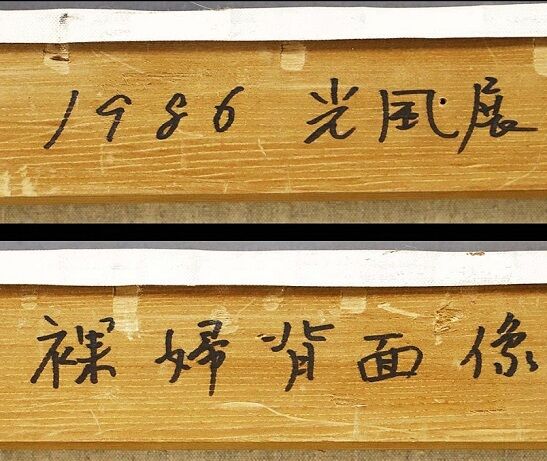 1986 光風展
裸婦背面像